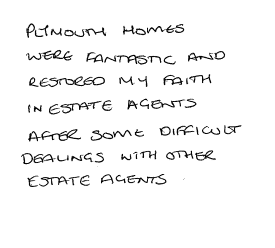 PLYMOUTH HOMES
WERE FANTASTIC AND
RESTORED MY FAITH
IN ESTATE AGENTS
AFTER SOME DIFFICULT
DEALINGS WITH OTHER
ESTATE AGENTS